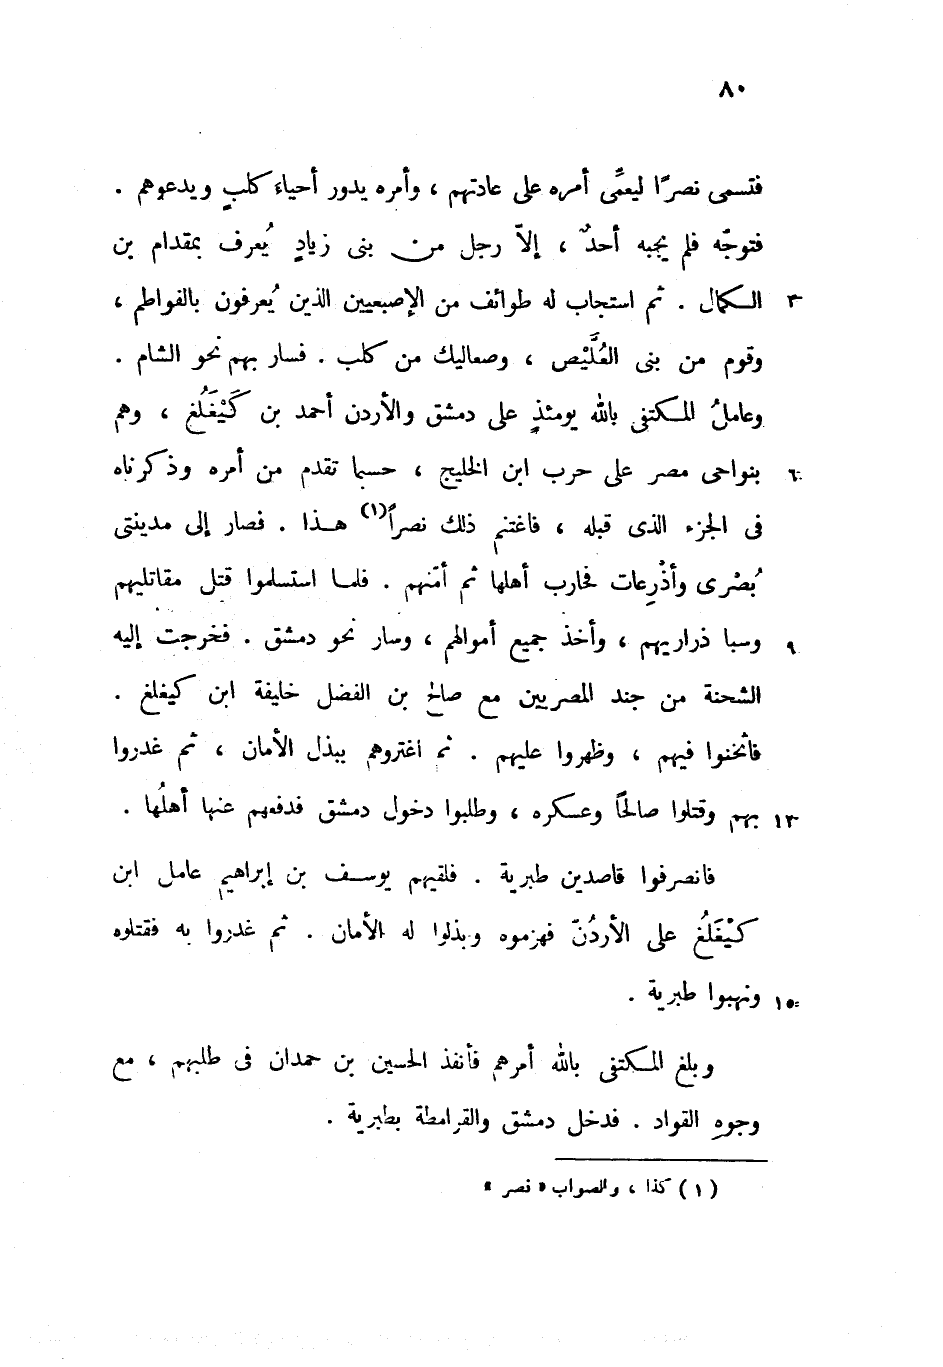 ٨٠
فتسمى نصرًا ليعمِّى أمره على عادتهم ، وأمره يدور أحياء كلبٍ ويدعوهم .
فتوجّه فلم يجبه أحدٌ ، إلاّ رجل من بنى زيادٍ يُعرف بمقدام بن
٣ الكمال . ثم استجاب له طوائف من الإصبعيين الذين يُعرفون بالفواطم ،
وقوم من بنى العُلَّيْص ، وصعاليك من كلب . فسار بهم نحو الشام .
وعاملُ المكتفى بالله يومئذٍ على دمشق والأردن أحمد بن كَيْغَلُغ ، وهم
٦ بنواحى مصر على حرب ابن الخليج ، حسبما تقدم من أمره وذكرناه
فى الجزء الذى قبله ، فاغتنم ذلك نصراً(١) هذا . فصار إلى مدينتى
بُصْرى وأذْرِعات فحارب أهلها ثم أمّنهم . فلما استسلموا قتل مقاتليهم
٩ وسبا ذراريهم ، وأخذ جميع أموالهم ، وسار نحو دمشق . فخرجت إليه
الشحنة من جند المصريين مع صالح بن الفضل خليفة ابن كيغلغ .
فأثخنوا فيهم ، وظهروا عليهم . ثم اغتروهم ببذل الأمان ، ثم غدروا
١٢ بهم وقتلوا صالحًا وعسكره ، وطلبوا دخول دمشق فدفعهم عنها أهلُها .
فانصرفوا قاصدين طبرية . فلقيهم يوسف بن إبراهيم عامل ابن
كَيْغَلُغ على الأردُنّ فهزموه وبذلوا له الأمان . ثم غدروا به فقتلوه
١٥ ونهبوا طبرية .
وبلغ المكتفى بالله أمرهم فأنفذ الحسين بن حمدان فى طلبهم ، مع
وجوهِ القواد . فدخل دمشق والقرامطة بطبرية .
(١) كذا ، والصواب « نصر »